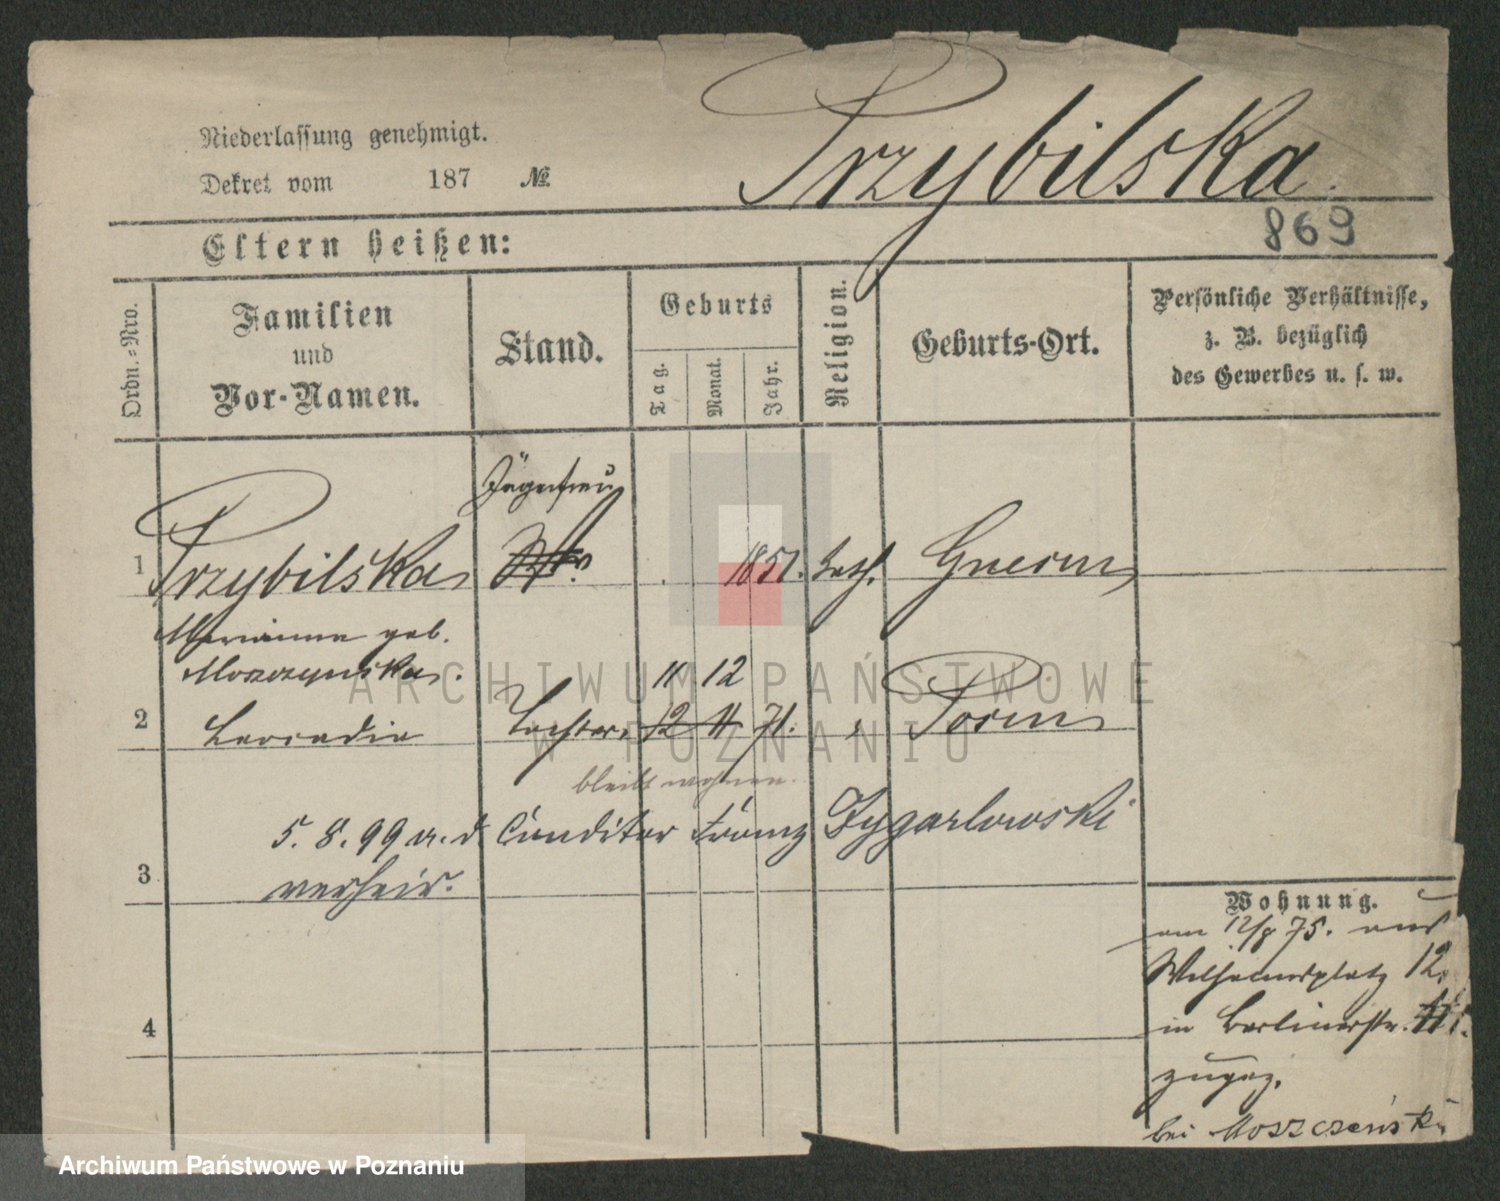 Niederlassung genehmigt.
Dekret vom 187 №
Przybilska
869
Eltern heißen:
Ordn.-Nro.
Familien
und
Vor-Namen.
Stand.
Geburts
Tag.
Monat.
Jahr.
Religion.
Geburts-Ort.
Persönliche Verhältnisse,
z. B. bezüglich
des Gewerbes u. s. w.
1 Przybilska 1851. kath. Gnesen
Marianna geb.
11 12
2 Leocadia Tochter. 12 11 71. " Posen
bleibt wohnen.
5. 8. 99 a. d. Conditor Franz Zygarlowski
3 verheir.
4
Wohnung.
am 12/8 75. aus
Wilhelmsplatz 12.
in Berlinerstr.
zugez.
bei Moszczeński
ARCHIWUM PAŃSTWOWE
W POZNANIU
Archiwum Państwowe w Poznaniu